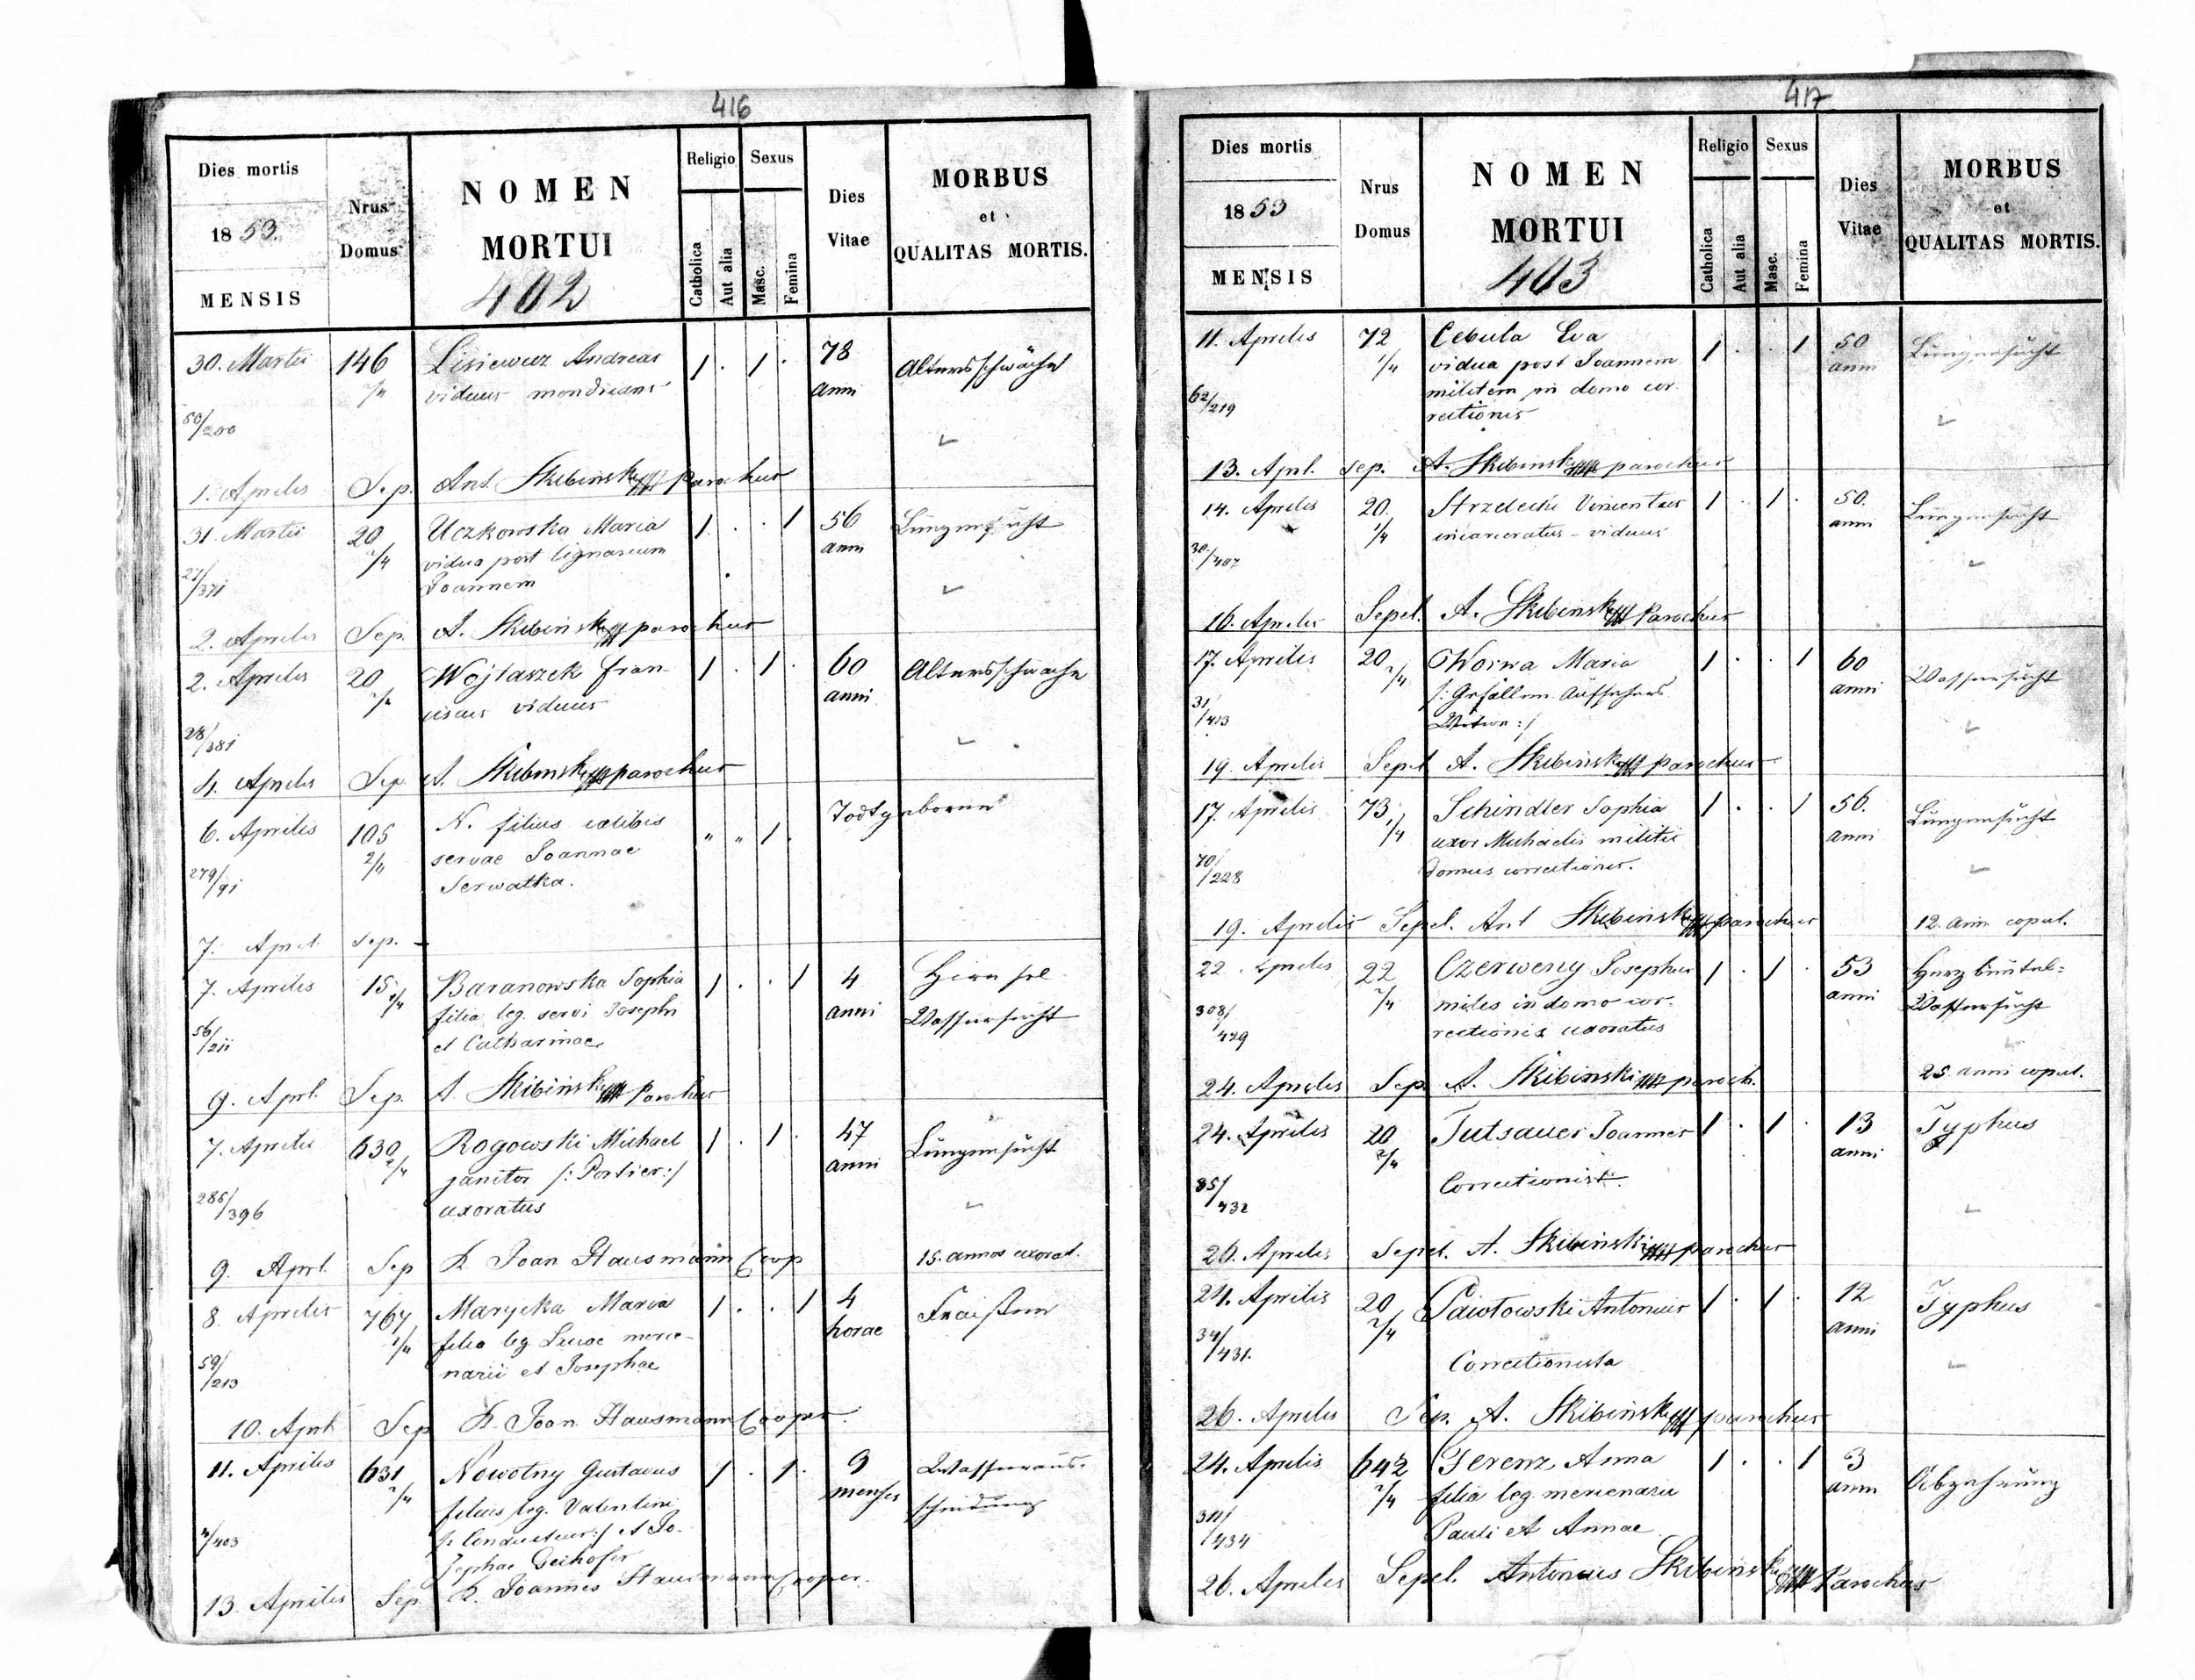 416
Dies mortis
1853.
MENSIS
Nrus
Domus
NOMEN
MORTUI
402
Religio
Catholica
Aut alia
Sexus
Masc.
Femina
Dies
Vitae
MORBUS
et
QUALITAS MORTIS.
30. Martii 146 Lisiewicz Andreas 1 . 1 . 78 Altersschwäche
viduus mendicans anni
50/200
1. Aprilis Sep. Ant Skibiński parochus
31. Martii 20 Uczkowska Maria 1 . . 1 56 Lungensucht
2/4 vidua post lignarium anni
27/371 Joannem
2. Aprilis Sep. A. Skibiński parochus
2. Aprilis 20 Wojtaszek Fran- 1 . 1 . 60 Altersschwäche
2/4 ciscus viduus anni
28/381
4. Aprilis Sep. A. Skibinski parochus
6. Aprilis 105 N. filius caelibis " " 1 . Todtgeboren
2/4 servae Joannae
279/91 Serwatka.
7. April. sep. –
7. Aprilis 15 Baranowska Sophia 1 . . 1 4 Hirnhöl
2/4 filia leg. servi Josephi anni Wassersucht
56/211 et Catharinae
9. Aprl. Sep. A. Skibiński parochus
7. Aprilis 630 Rogowski Michael 1 . 1 . 47 Lungensucht
2/4 janitor /: Portier :/ anni
285/396 uxoratus
9. Aprl. Sep K Joan Hausmann Coop 15. annos uxorat.
8 Aprilis 767 Marycka Maria 1 . . 1 4 Fraißen
filia leg. Lucae merce- horae
59/213 narii et Josephae
10. Aprl Sep K Joan Hausmann Cooper.
11. Aprilis 631 Nowotny Gustavus 1 . 1 . 9 Wasseraus-
2/4 filius leg. Valentini menses scheidung
/: Conducteur :/ et Jo-
sephae Geihofer
13. Aprilis Sep. K. Joannes Hausmann Cooper.
417
Dies mortis
1853
MENSIS
Nrus
Domus
NOMEN
MORTUI
403
Religio
Catholica
Aut alia
Sexus
Masc.
Femina
Dies
Vitae
MORBUS
et
QUALITAS MORTIS.
11. Aprilis 72 Cebula Eva 1 . . 1 50 Lungensucht
1/4 vidua post Joannem anni
62/219 militem in domo cor-
rectionis
13. Aprl. sep. A. Skibinski parochus
14. Aprilis 20. Strzelecki Vincentius 1 . 1 . 50. Lungensucht
1/4 incarceratus – viduus anni
30/407
16. Aprilis Sepel. A. Skibiński Parochus
17. Aprilis 20 Worwa Maria 1 . . 1 60 Wassersucht
2/4 /: Gefällen Aufsehers anni
31/413 Witwe :/
19. Aprilis Sepel A. Skibiński parochus
17. Aprilis 73 Schindler Sophia 1 . . 1 56. Lungensucht
1/4 uxor Michaelis militis anni
70/228 domus correctionis.
19. Aprilis Sepel. Ant Skibiński parochus 12. ann copul.
22. Aprilis 22 Czerweny Josephus 1 . 1 . 53 Herzbeutel-
2/4 miles in domo cor- anni Wassersucht
308/429 rectionis uxoratus
24. Aprilis Sep. A. Skibinski paroch. 25. anni copul.
24. Aprilis 20 Tutsauer Joannes 1 . 1 . 13 Typhus
2/4 anni
35/432 Correctionist.
26. Aprilis Sepel. A. Skibiński parochus
24. Aprilis 20 Pawłowski Antonius 1 . 1 . 12 Typhus
2/4 anni
34/431. Correctionista
26. Aprilis Sep. A. Skibiński parochus
24. Aprilis 642 Gerenz Anna 1 . . 1 3 Abzehrung
2/4 filia leg. mercenarii anni
311/434 Pauli et Annae
26. Aprilis Sepel. Antonius Skibiński Parochus